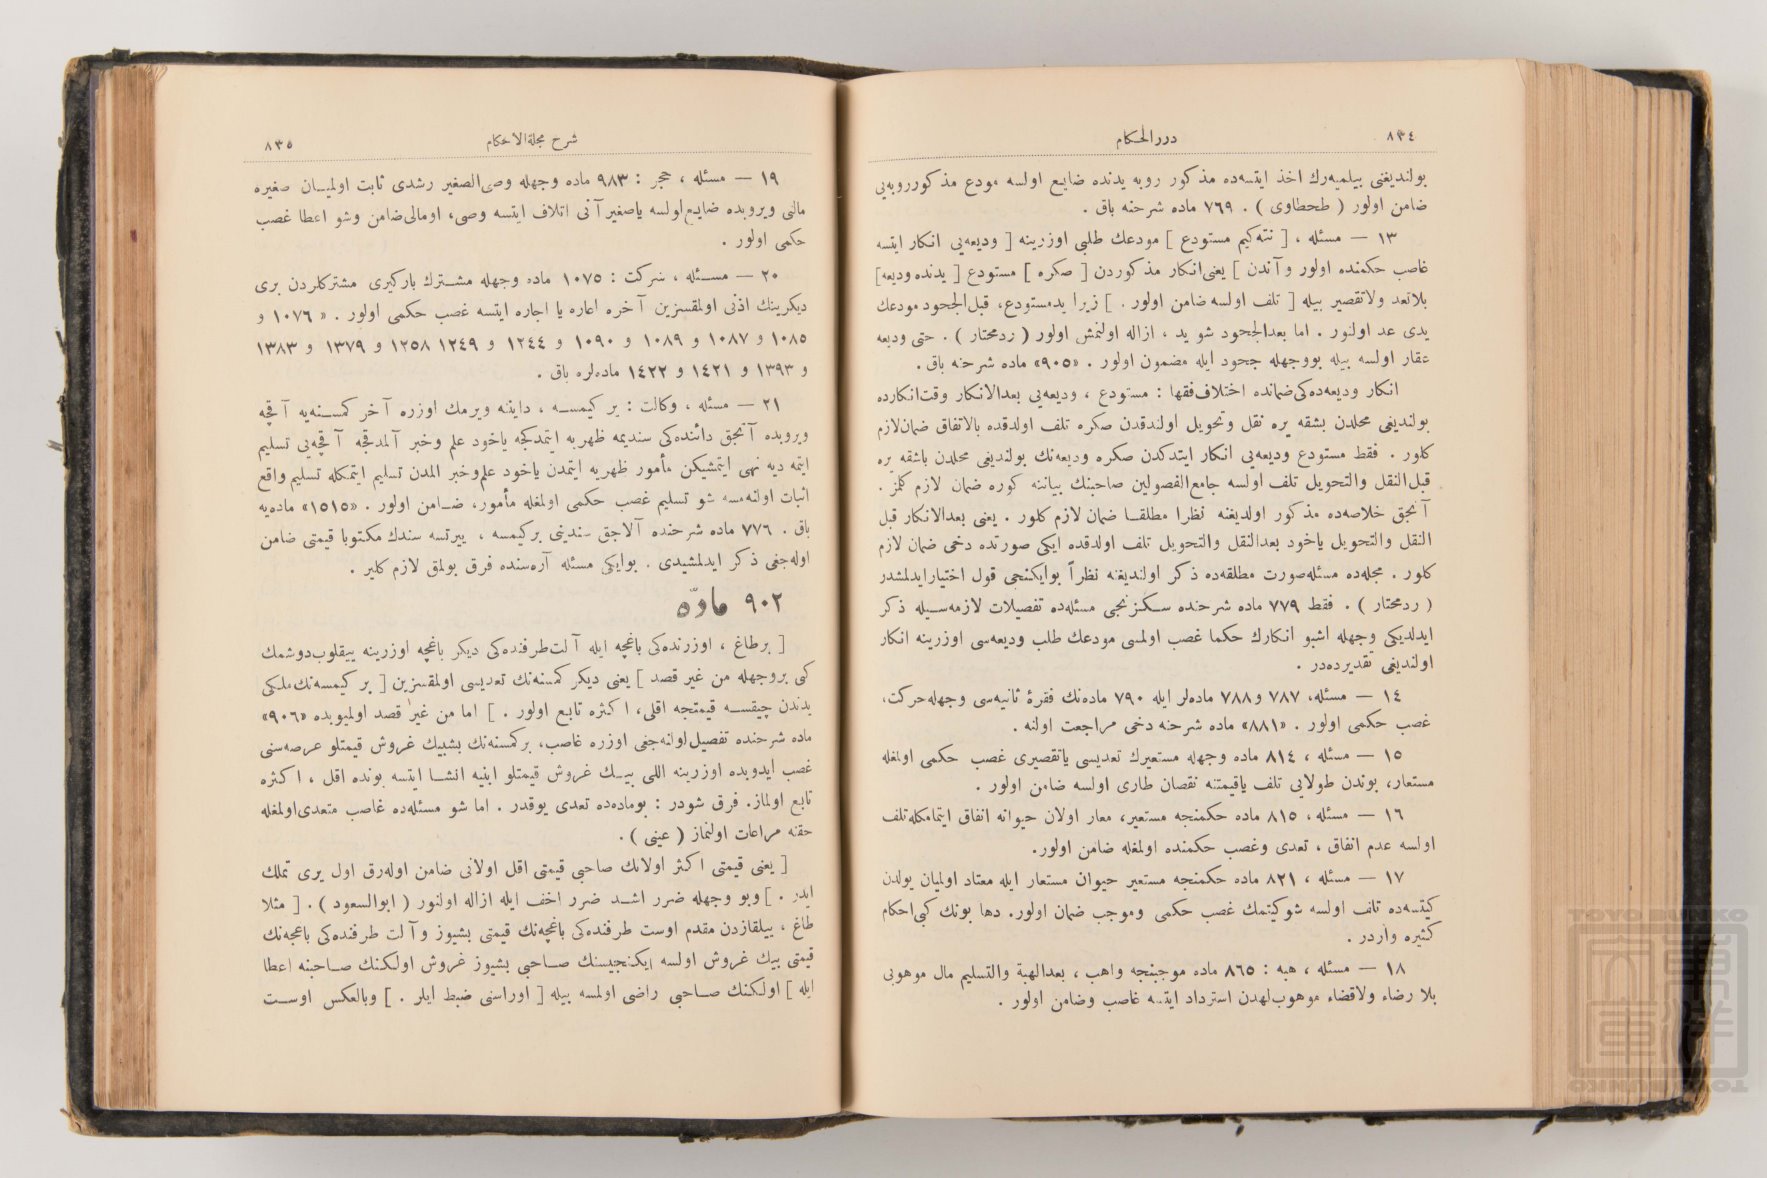 ٨٣٤
دررالحكام
بولنديغنى بيلميه‌رك اخذ ايتسه‌ده مذكور روبه يدنده ضايع اولسه مودع مذكور روبه‌يى
ضامن اولور ( طحطاوى ) . ٧٦٩ ماده شرحنه باق .
١٣ — مسئله ، [ نته‌كيم مستودع ] مودعك طلبى اوزرينه [ وديعه‌يى انكار ايتسه
غاصب حكمنده اولور و آندن ] يعنى انكار مذكوردن [ صكره ] مستودع [ يدنده وديعه]
بلاتعد ولاتقصير بيله [ تلف اولسه ضامن اولور . ] زيرا يدمستودع، قبل‌الجحود مودعك
يدى عد اولنور . اما بعدالجحود شو يد ، ازاله اولنمش اولور ( ردمحتار ) . حتى وديعه
عقار اولسه بيله بووجهله جحود ايله مضمون اولور . «٩٠٥» ماده شرحنه باق .
انكار وديعه‌ده‌كى‌ضمانده اختلاف‌فقها : مستودع ، وديعه‌يى بعدالانكار وقت‌انكارده
بولنديغى محلدن بشقه يره نقل وتحويل اولندقدن صكره تلف اولدقده بالاتفاق ضمان‌لازم
كلور . فقط مستودع وديعه‌يى انكار ايتدكدن صكره وديعه‌نك بولنديغى محلدن باشقه يره
قبل‌النقل والتحويل تلف اولسه جامع‌الفصولين صاحبنك بياننه كوره ضمان لازم كلمز .
آنجق خلاصه‌ده مذكور اولديغنه نظرا مطلقا ضمان لازم كلور . يعنى بعدالانكار قبل
النقل والتحويل ياخود بعدالنقل والتحويل تلف اولدقده ايكى صورتده دخى ضمان لازم
كلور . مجله‌ده مسئله‌صورت مطلقه‌ده ذكر اولنديغنه نظراً بوايكنجى قول اختيارايدلمشدر
( ردمحتار ) . فقط ٧٧٩ ماده شرحنده سكزنجى مسئله‌ده تفصيلات لازمه‌سيله ذكر
ايدلديكى وجهله اشبو انكارك حكما غصب اولمسى مودعك طلب وديعه‌سى اوزرينه انكار
اولنديغى تقديرده‌در .
١٤ — مسئله، ٧٨٧ و ٧٨٨ ماده‌لر ايله ٧٩٠ ماده‌نك فقرهٔ ثانيه‌سى وجهله‌حركت،
غصب حكمى اولور . «٨٨١» ماده شرحنه دخى مراجعت اولنه .
١٥ — مسئله ، ٨١٤ ماده وجهله مستعيرك تعديسى ياتقصيرى غصب حكمى اولمغله
مستعار، بوندن طولايى تلف ياقيمتنه نقصان طارى اولسه ضامن اولور .
١٦ — مسئله ، ٨١٥ ماده حكمنجه مستعير، معار اولان حيوانه انفاق ايتمامكله‌تلف
اولسه عدم انفاق ، تعدى وغصب حكمنده اولمغله ضامن اولور.
١٧ — مسئله ، ٨٢١ ماده حكمنجه مستعير حيوان مستعار ايله معتاد اولميان يولدن
كيتسه‌ده تلف اولسه شوكيتمك غصب حكمى وموجب ضمان اولور. دها بونك كبى‌احكام
كثيره واردر .
١٨ — مسئله ، هبه : ٨٦٥ ماده موجبنجه واهب ، بعدالهبة والتسليم مال موهوبى
بلا رضاء ولاقضاء موهوب‌لهدن استرداد ايتسه غاصب وضامن اولور .
شرح مجلةالاحكام
٨٣٥
١٩ — مسئله ، حجر : ٩٨٣ ماده وجهله وصى‌الصغير رشدى ثابت اولميان صغيره
مالنى ويروبده ضايع‌اولسه ياصغير آنى اتلاف ايتسه وصى، اومالى‌ضامن وشو اعطا غصب
حكمى اولور .
٢٠ — مسئله ، شركت : ١٠٧٥ ماده وجهله مشترك باركيرى مشتركلردن برى
ديكرينك اذنى اولمقسزين آخره اعاره يا اجاره ايتسه غصب حكمى اولور . « ١٠٧٦ و
١٠٨٥ و ١٠٨٧ و ١٠٨٩ و ١٠٩٠ و ١٢٤٤ و ١٢٤٩ ١٢٥٨ و ١٣٧٩ و ١٣٨٣
و ١٣٩٣ و ١٤٢١ و ١٤٢٢ ماده‌لره باق .
٢١ — مسئله ، وكالت : بر كيمسه ، داينه ويرمك اوزره آخر كمسنه‌يه آقچه
ويروبده آنجق دائنده‌كى سنديمه ظهريه ايتمدكجه ياخود علم وخبر آلمدقجه آقچه‌يى تسليم
ايتمه ديه نهى ايتمشيكن مأمور ظهريه ايتمدن ياخود علم‌وخبر المدن تسليم ايتمكله تسليم واقع
اثبات اولنه‌مسه شو تسليم غصب حكمى اولمغله مأمور، ضامن اولور . «١٥١٥» ماده‌يه
باق . ٧٧٦ ماده شرحنده آلاجق سندينى بركيمسه ، ييرتسه سندك مكتوبا قيمتى ضامن
اوله‌جغى ذكر ايدلمشيدى . بوايكى مسئله آره‌سنده فرق بولمق لازم كلير .
٩٠٢ مادّه
[ برطاغ ، اوزرنده‌كى باغچه ايله آلت‌طرفنده‌كى ديكر باغچه اوزرينه ييقلوب‌دوشمك
كبى بروجهله من غير قصد ] يعنى ديكر كمسنه‌نك تعديسى اولمقسزين [ بر كيمسه‌نك‌ملكى
يدندن چيقسه قيمتجه اقلى، اكثره تابع اولور . ] اما من غير قصد اولميوبده «٩٠٦»
ماده شرحنده تفصيل‌اولنه‌جغى اوزره غاصب، بركمسنه‌نك بشبيك غروش قيمتلو عرصه‌سنى
غصب ايدوبده اوزرينه اللى بيك غروش قيمتلو ابنيه انشا ايتسه بونده اقل ، اكثره
تابع اولماز. فرق شودر : بوماده‌ده تعدى يوقدر . اما شو مسئله‌ده غاصب متعدى‌اولمغله
حقنه مراعات اولنماز ( عينى ) .
[ يعنى قيمتى اكثر اولانك صاحبى قيمتى اقل اولانى ضامن اوله‌رق اول يرى تملك
ايدر . ] وبو وجهله ضرر اشد ضرر اخف ايله ازاله اولنور ( ابوالسعود ) . [ مثلا
طاغ ، ييلقازدن مقدم اوست طرفنده‌كى باغچه‌نك قيمتى بشيوز و آلت طرفنده‌كى باغچه‌نك
قيمتى بيك غروش اولسه ايكنجيسنك صاحبى بشيوز غروش اولكنك صاحبنه اعطا
ايله ] اولكنك صاحبى راضى اولمسه بيله [ اوراسنى ضبط ايلر . ] وبالعكس اوست
TOYO BUNKO
東洋文庫
TOYO BUNKO